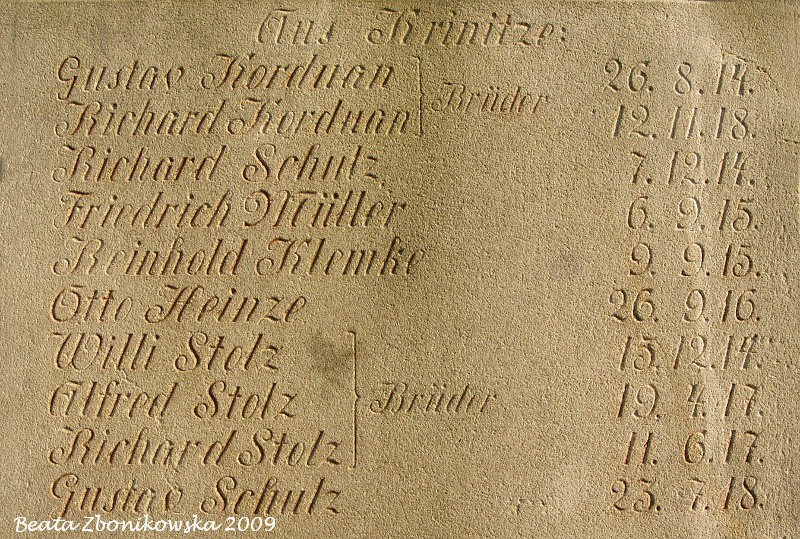 Aus Krinitze:
Gustav Korduan 26. 8. 14.
Brüder
Richard Korduan 12. 11. 18.
Richard Schulz 7. 12. 14.
Friedrich Müller 6. 9. 15.
Reinhold Klemke 9. 9. 15.
Otto Heinze 26. 9. 16.
Willi Stolz 13. 12. 14.
Alfred Stolz Brüder 19. 4. 17.
Richard Stolz 11. 6. 17.
Gustav Schulz 23. 7. 18.
Beata Zbonikowska 2009